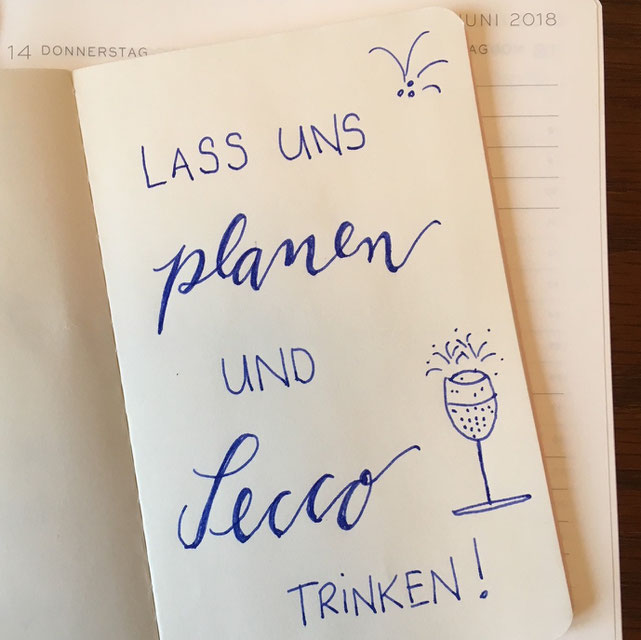 14 DONNERSTAG
JUNI 2018
LASS UNS
planen
UND
Secco
TRINKEN!